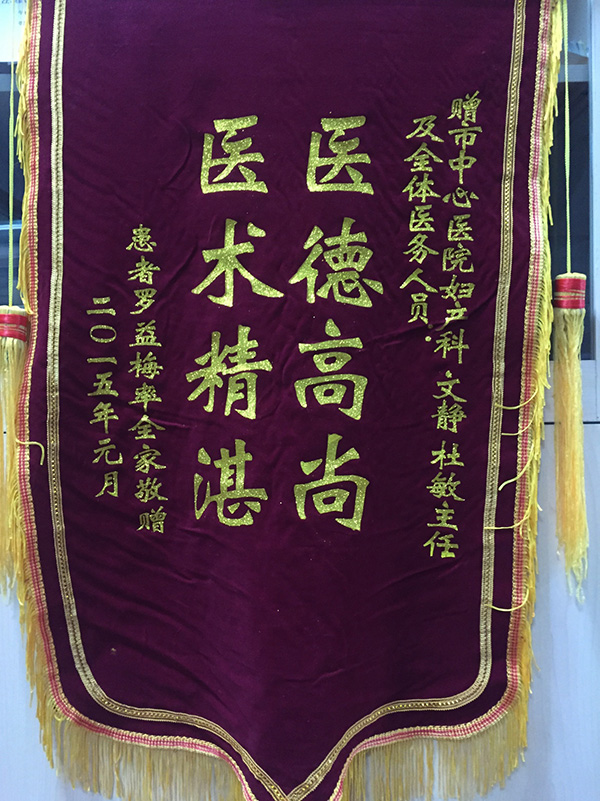 赠市中心医院妇产科 文静 杜敏主任
及全体医务人员：
医德高尚
医术精湛
患者罗益梅率全家敬赠
二〇一五年元月